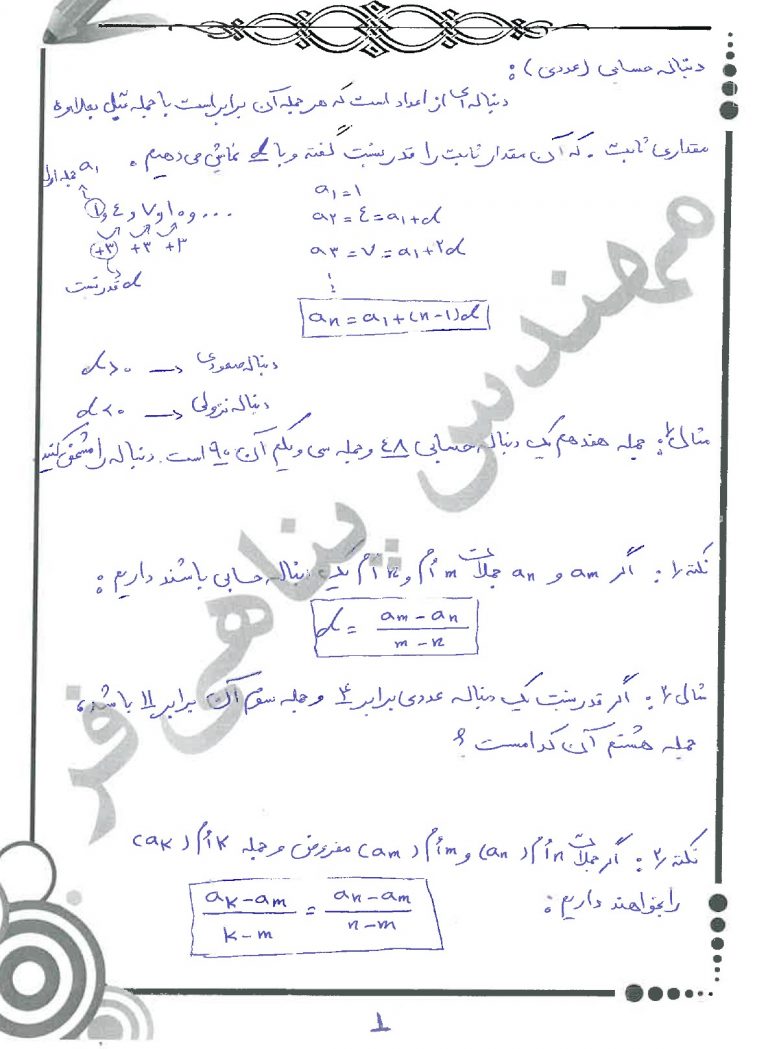 دنباله حسابی (عددی):
دنباله‌ای از اعداد است که هر جمله آن برابر است با جمله قبل بعلاوه
مقداری ثابت. که آن مقدار ثابت را قدرنسبت گفته و با d نمایش می‌دهیم.
a₁ جمله اول
۱ و ٤ و ۷ و ۱۰ و ...
+۳ +۳ +۳
d قدرنسبت
a₁ = ۱
a₂ = ٤ = a₁+d
a₃ = ۷ = a₁+۲d
⋮
aₙ = a₁+(n-1)d
d>۰ → دنباله صعودی
d<۰ → دنباله نزولی
مثال ۱: جمله هفدهم یک دنباله حسابی ٤۸ و جمله سی و یکم آن ۹۰ است. دنباله را مشخص کنید
نکته ۱: اگر aₘ و aₙ جملات m اُم و n اُم یک دنباله حسابی باشند داریم:
d = (aₘ-aₙ)/(m-n)
مثال ۲: اگر قدرنسبت یک دنباله عددی برابر ۴ و جمله سوم آن برابر ۱۱ باشد،
جمله هشتم آن کدامست؟
نکته ۲: اگر جملات n اُم (aₙ) و m اُم (aₘ) مفروض و جمله k اُم (aₖ)
را بخواهند داریم:
(aₖ-aₘ)/(k-m) = (aₙ-aₘ)/(n-m)
مهندس پناهی فر
1